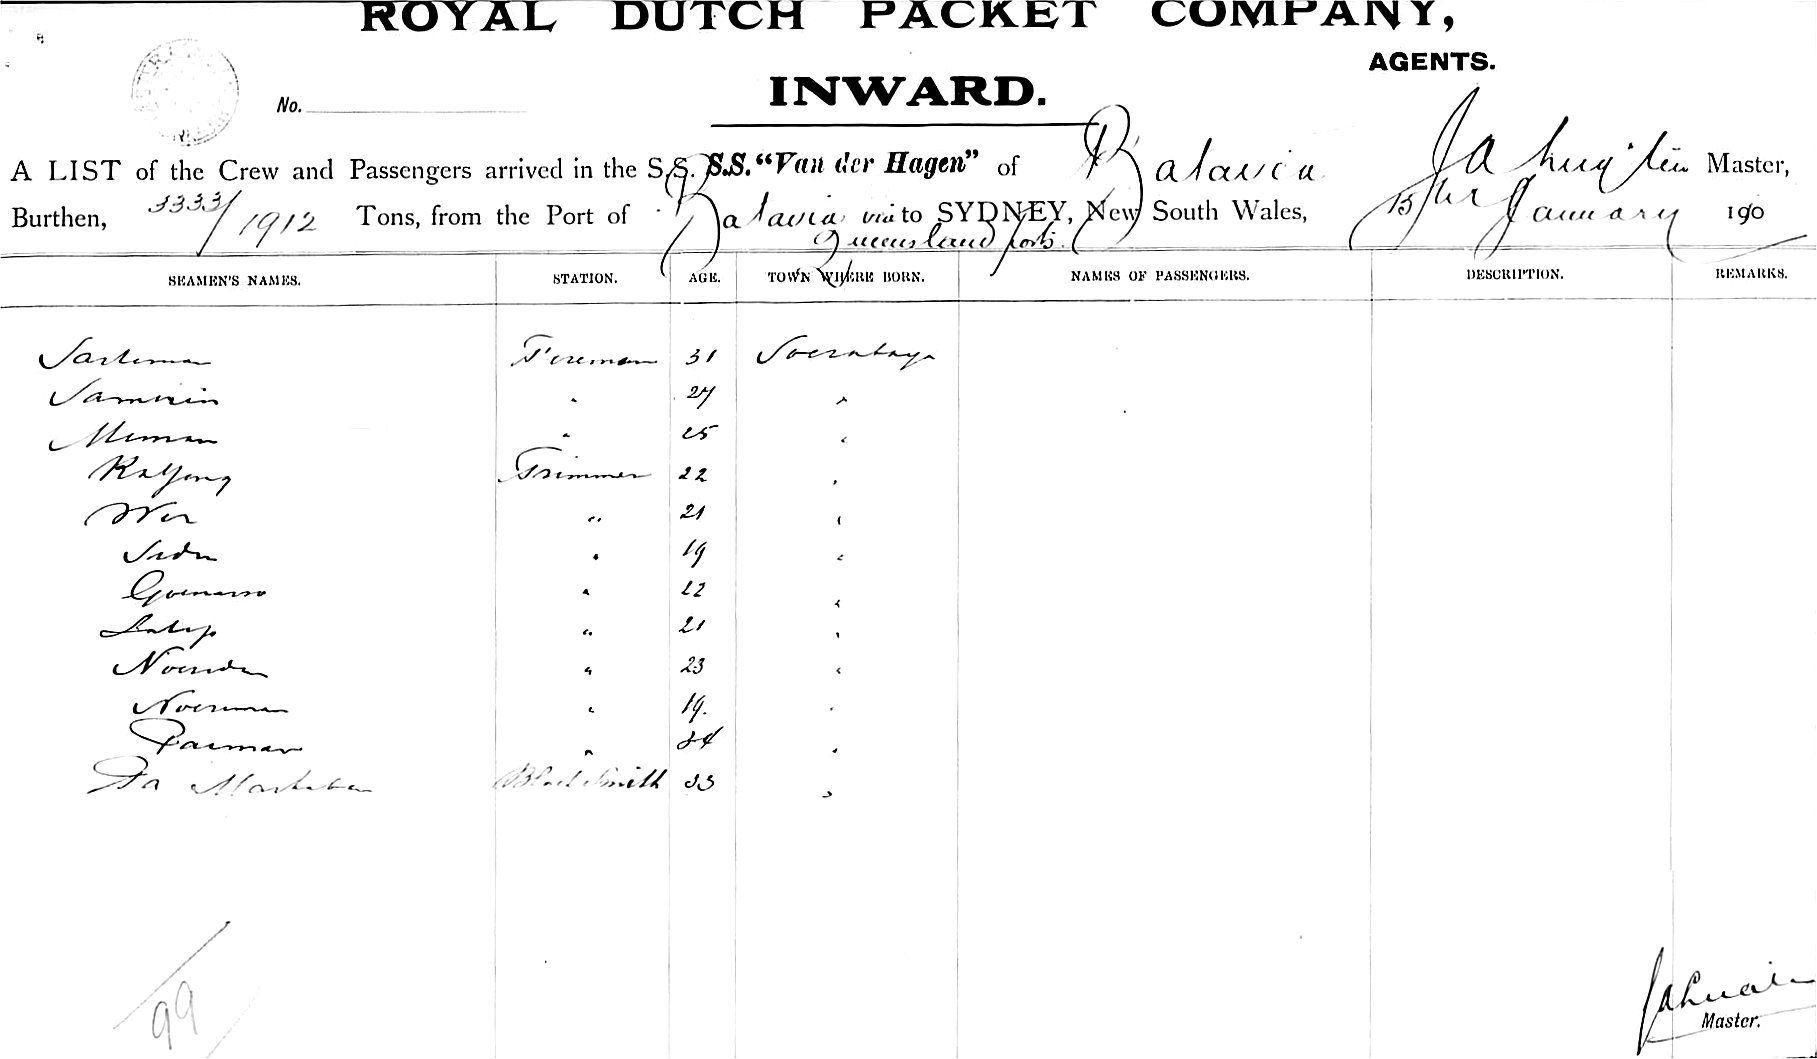 ROYAL DUTCH PACKET COMPANY,
AGENTS.
INWARD.
No.
A LIST of the Crew and Passengers arrived in the S.S. S.S. "Van der Hagen" of Batavia Master,
Burthen, 3333/1912 Tons, from the Port of Batavia via to SYDNEY, New South Wales, 15th January 190
Queensland ports.
SEAMEN'S NAMES. STATION. AGE. TOWN WHERE BORN. NAMES OF PASSENGERS. DESCRIPTION. REMARKS.
Fireman 31 Soerabaya
Samirin " 27 "
" 25 "
Trimmer 22 "
" 21 "
" 19 "
" 22 "
Latip " 21 "
" 23 "
Noeriman " 19. "
Paiman " 34 "
Blacksmith 33 "
99
Master.